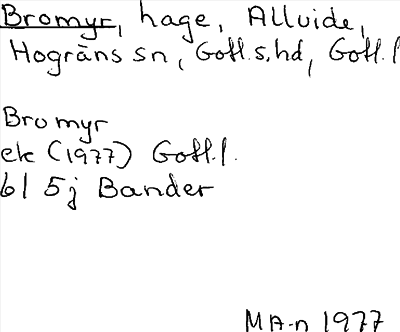 Bromyr, hage, Allvide,
Hogräns sn, Gotl.s.hd, Gotl.l
Bromyr
ek (1977) Gotl.l.
6I 5j Bander
MA-n 1977